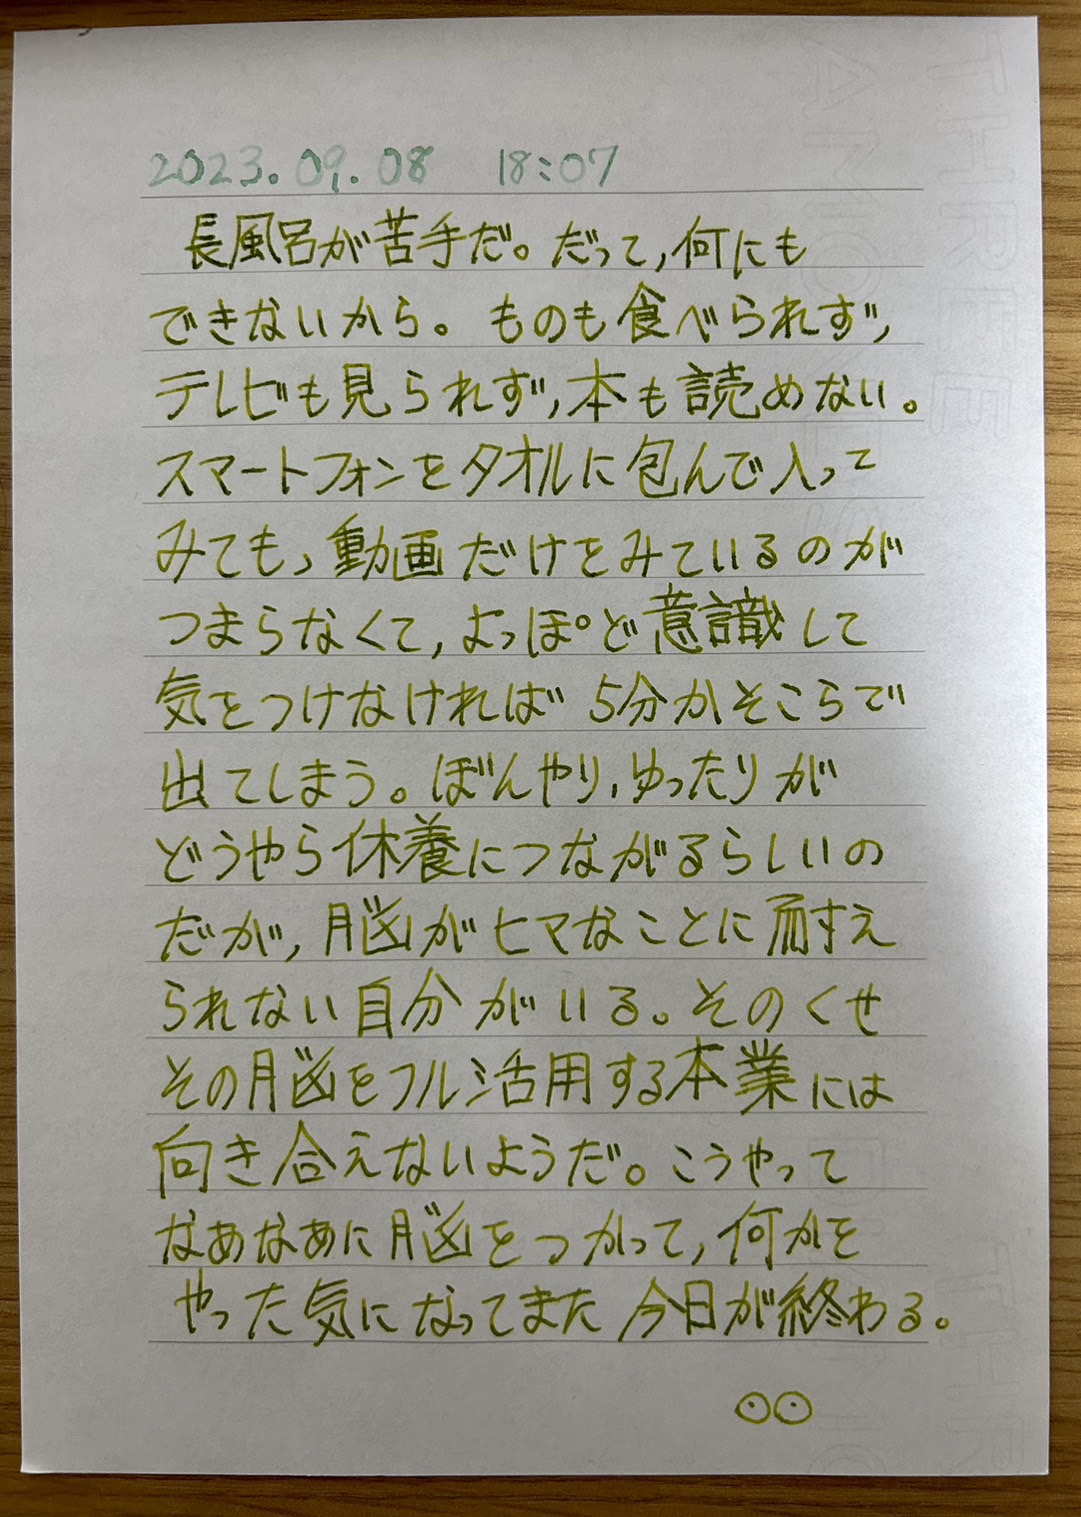 2023.09.08 18:07
長風呂が苦手だ。だって,何にも
できないから。ものも食べられず,
テレビも見られず,本も読めない。
スマートフォンをタオルに包んで入って
みても,動画だけをみているのが
つまらなくて,よっぽど意識して
気をつけなければ5分かそこらで
出てしまう。ぼんやり,ゆったりが
どうやら休養につながるらしいの
だが,脳がヒマなことに耐え
られない自分がいる。そのくせ
その脳をフル活用する本業には
向き合えないようだ。こうやって
なあなあに脳をつかって,何かを
やった気になってまた今日が終わる。